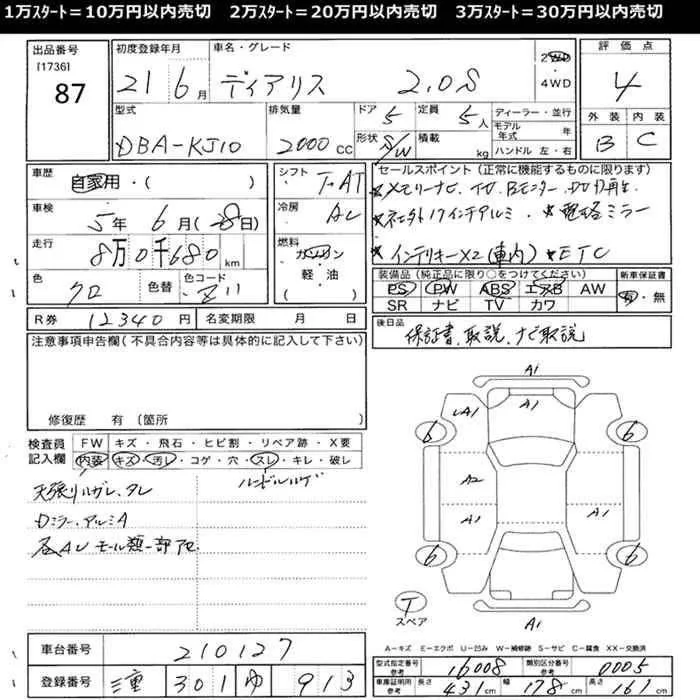 1万ｽﾀｰﾄ＝10万円以内売切　2万ｽﾀｰﾄ＝20万円以内売切　3万ｽﾀｰﾄ＝30万円以内売切
出品番号
[1736]
87
初度登録年月
21 6月
車名・グレード
ディアリス 2.0S
2WD
4WD
評価点
4
外装 内装
B C
型式
DBA-KJ10
排気量
2000 CC
ドア 5
形状 S/W
定員 5人
積載 kg
ディーラー・並行
モデル年式 年
ハンドル 左・右
車歴
自家用・( )
車検
5年 6月(28日)
走行
8万0千680 km
色
クロ
色替
色コード
Z11
シフト
F AT
冷房
AC
燃料
ガソリン
軽・油
セールスポイント(正常に機能するものに限ります)
★メモリーナビ、TV、Bモニター、DVD再生
★社外17インチアルミ ★電格ミラー
★インテリキーX2(車内) ★ETC
装備品(純正品に限り○をつけてください)
PS PW ABS エアB AW
SR ナビ TV カワ
新車保証書
有・無
R券 12340円
名変期限 月 日
後日品
保証書、取説、ナビ取説
注意事項申告欄(不具合内容等は具体的に記入して下さい)
修復歴 有 〔箇所 〕
検査員
記入欄
FW キズ・飛石・ヒビ割・リペア跡・X要
内装 キズ・汚レ・コゲ・穴・スレ・キレ・破レ
天張リハガレ、タレ
Dミラー、アルミA
A1
A1
A1
6
6
A2
A1
A1
6
6
T
スペア
A1
A=キズ E=エクボ U=凹み W=補修跡 S=サビ C=腐食 XX=交換済
車台番号
210127
登録番号
三重 301 ゆ 913
型式指定番号
参考
16008
類別区分番号
参考
0005
車庫証明用
参考
長さ 431cm
幅 178cm
高さ 161cm